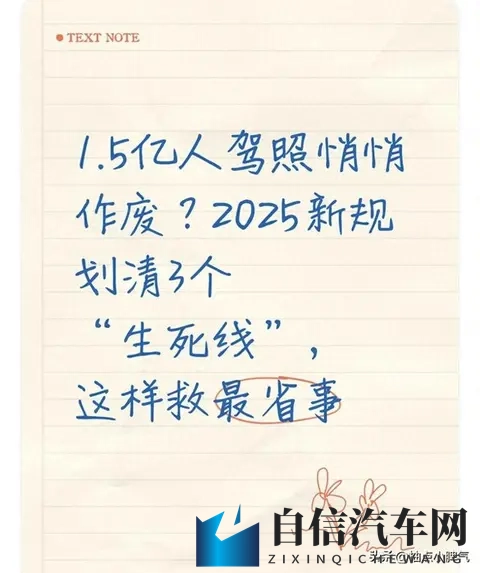 TEXT NOTE
1.5亿人驾照悄悄
作废？2025新规
划清3个
“生死线”，
这样救最省事
自信汽车网
ZIXINQICHEWANG